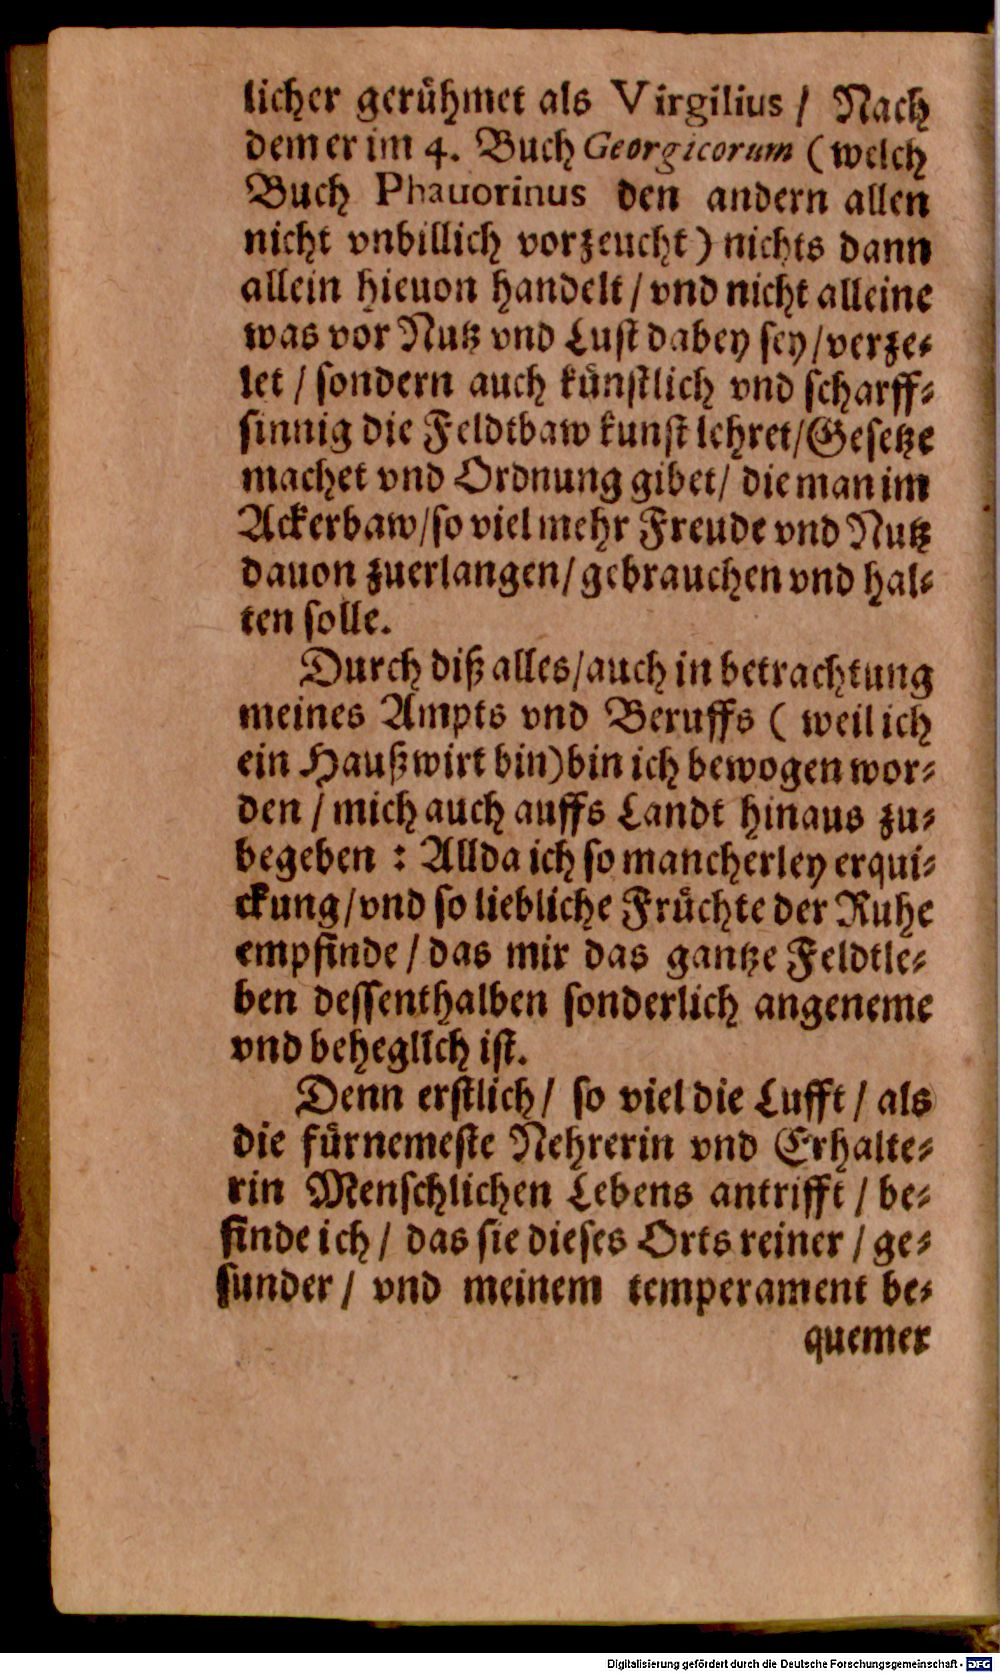 licher gerühmet als Virgilius / Nach
dem er im 4. Buch Georgicorum (welch
Buch Phauorinus den andern allen
nicht vnbillich vorzeucht) nichts dann
allein hieuon handelt / vnd nicht alleine
was vor Nutz vnd Lust dabey sey / verze-
let / sondern auch künstlich vnd scharff-
sinnig die Feldtbaw kunst lehret / Gesetze
machet vnd Ordnung gibet / die man im
Ackerbaw / so viel mehr Freude vnd Nutz
dauon zuerlangen / gebrauchen vnd hal-
ten solle.
Durch diß alles / auch in betrachtung
meines Ampts vnd Beruffs ( weil ich
ein Haußwirt bin) bin ich bewogen wor-
den / mich auch auffs Landt hinaus zu-
begeben : Allda ich so mancherley erqui-
ckung / vnd so liebliche Früchte der Ruhe
empfinde / das mir das gantze Feldtle-
ben dessenthalben sonderlich angeneme
vnd beheglich ist.
Denn erstlich / so viel die Lufft / als
die fürnemeste Nehrerin vnd Erhalte-
rin Menschlichen Lebens antrifft / be-
finde ich / das sie dieses Orts reiner / ge-
sunder / vnd meinem temperament be-
quemer
Digitalisierung gefördert durch die Deutsche Forschungsgemeinschaft - DFG